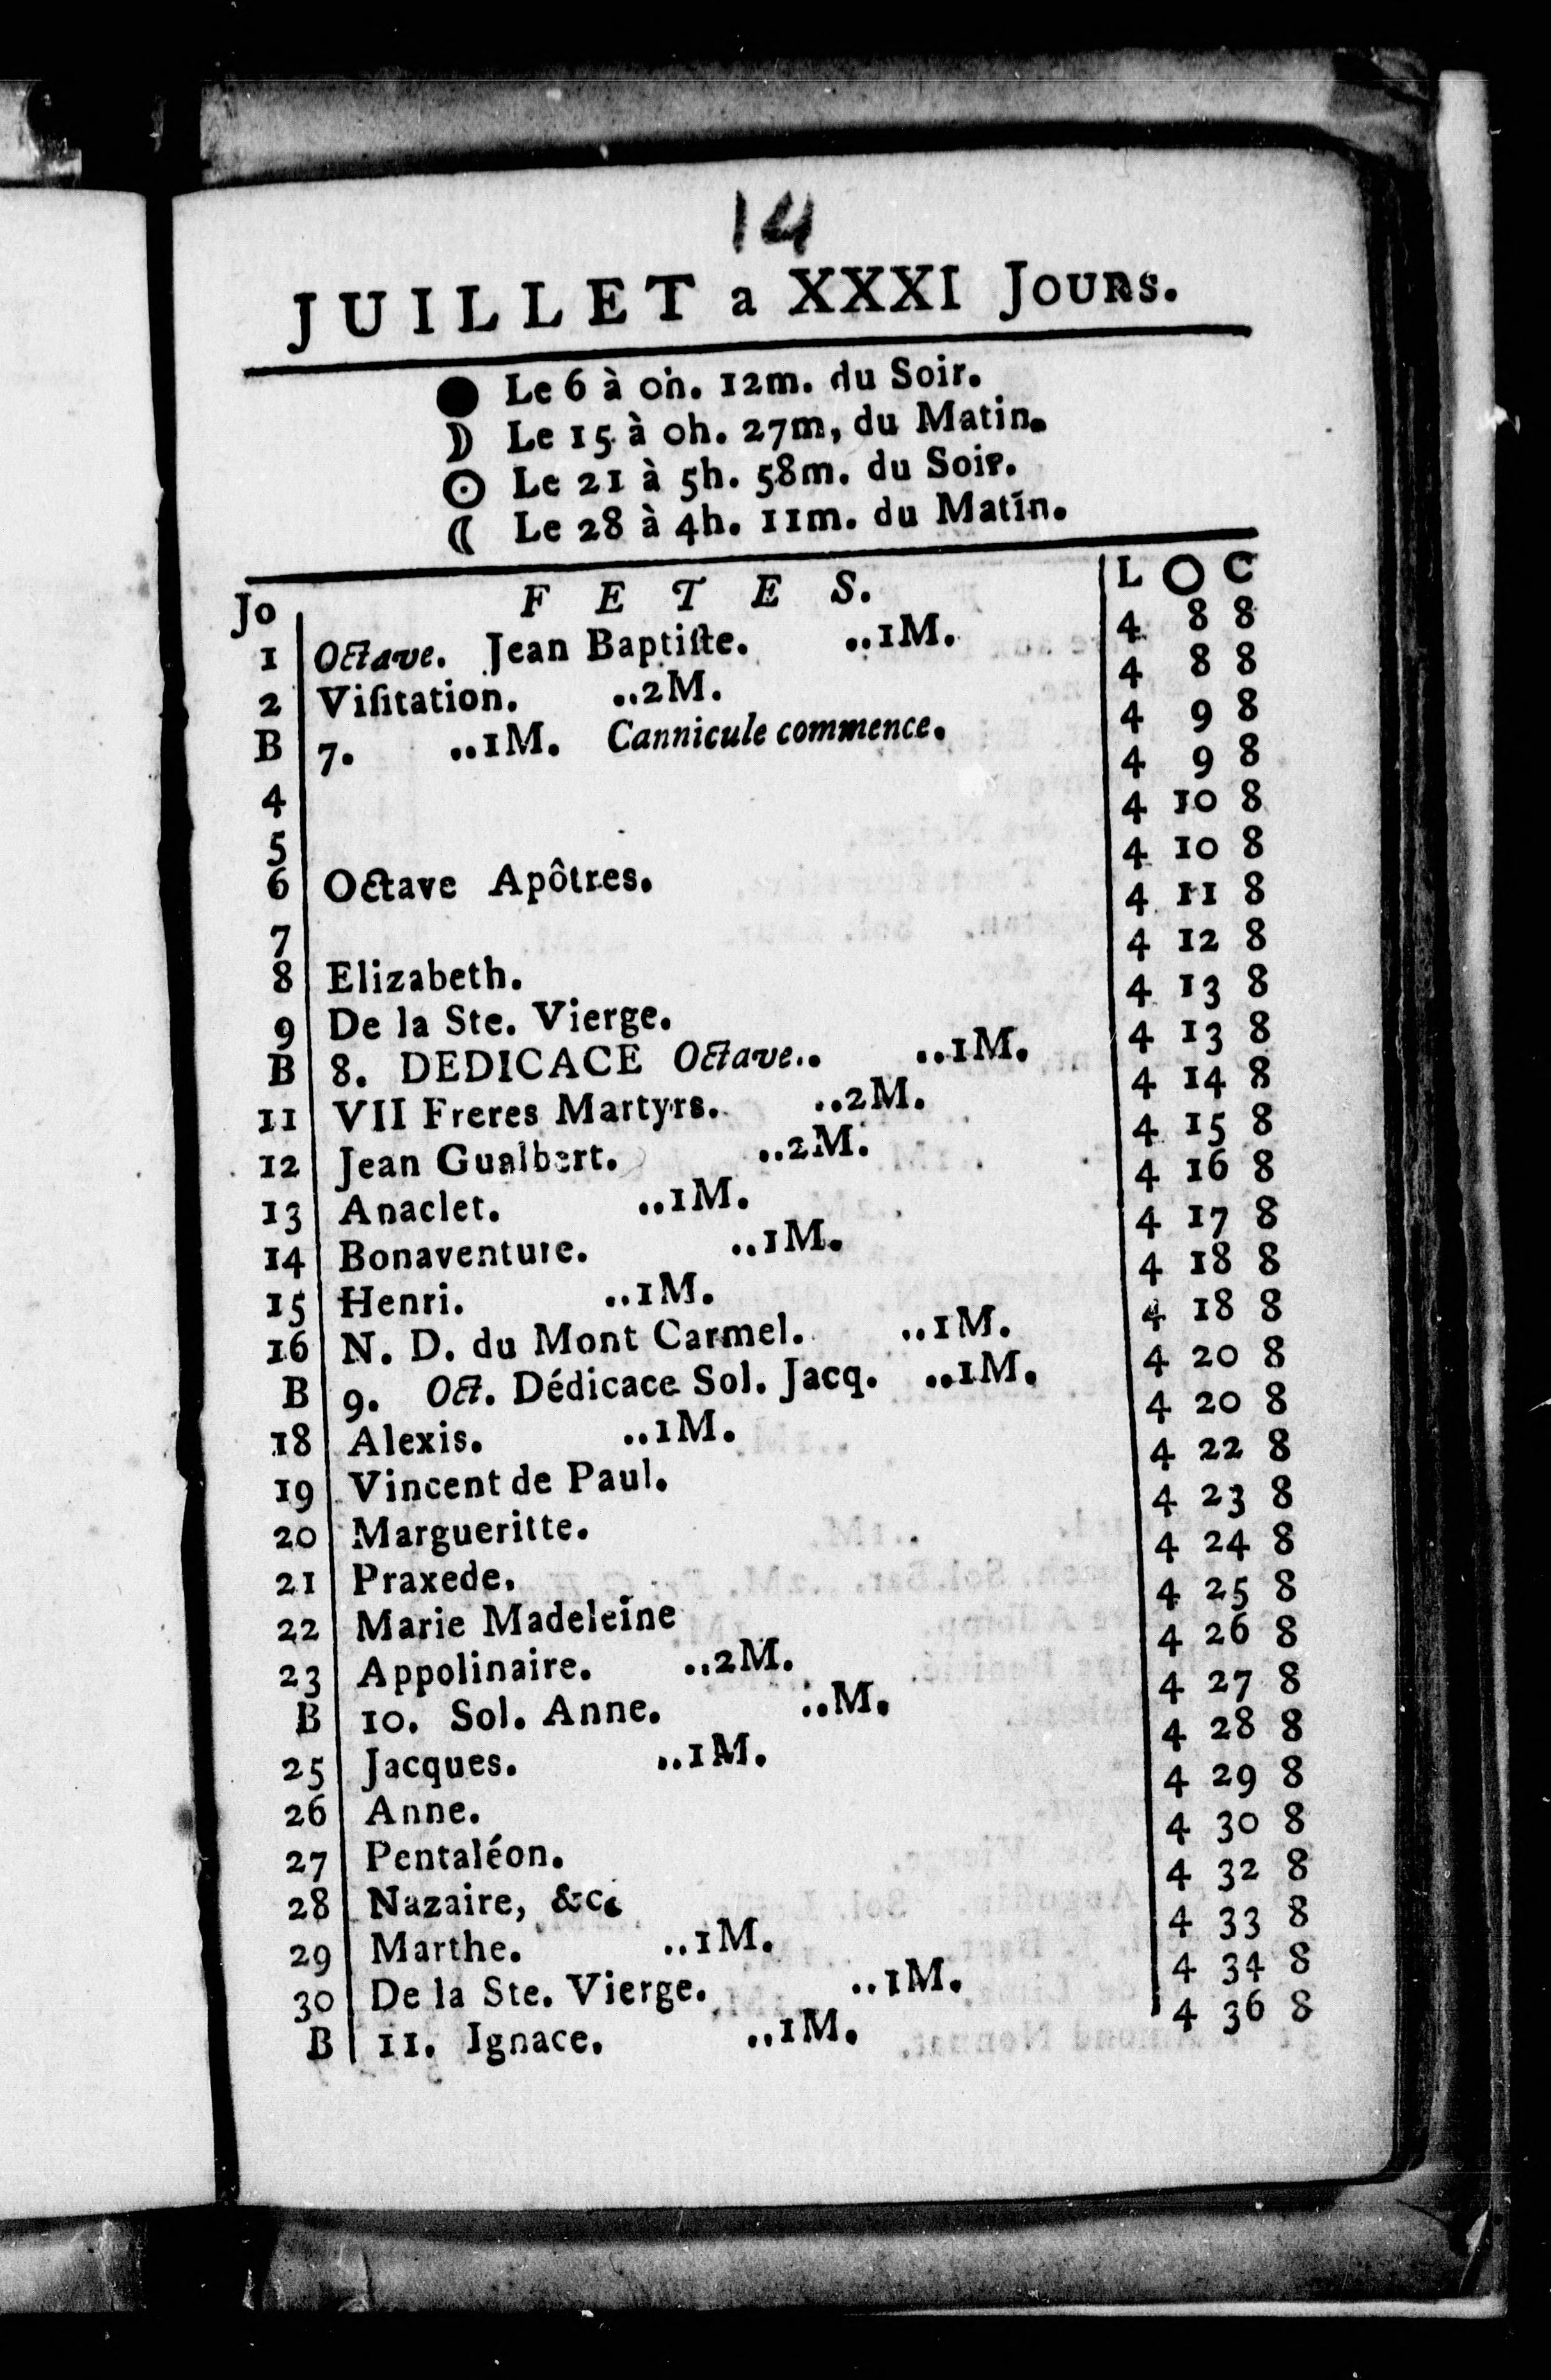 14
JUILLET a XXXI JOURS.
● Le 6 à 0h. 12m. du Soir.
☽ Le 15 à 0h. 27m, du Matin.
☉ Le 21 à 5h. 58m. du Soir.
☾ Le 28 à 4h. 11m. du Matin.
Jo F E T E S. L O C
1 Octave. Jean Baptiſte. ..1M. 4 8 8
2 Viſitation. ..2M. 4 8 8
B 7. ..1M. Cannicule commence. 4 9 8
4 4 9 8
5 4 10 8
6 Octave Apôtres. 4 10 8
7 4 11 8
8 Elizabeth. 4 12 8
9 De la Ste. Vierge. 4 13 8
B 8. DEDICACE Octave.. ..1M. 4 13 8
11 VII Freres Martyrs. ..2M. 4 14 8
12 Jean Gualbert. ..2M. 4 15 8
13 Anaclet. ..1M. 4 16 8
14 Bonaventure. ..1M. 4 17 8
15 Henri. ..1M. 4 18 8
16 N. D. du Mont Carmel. ..1M. 4 18 8
B 9. Oct. Dédicace Sol. Jacq. ..1M. 4 20 8
18 Alexis. ..1M. 4 20 8
19 Vincent de Paul. 4 22 8
20 Margueritte. 4 23 8
21 Praxede. 4 24 8
22 Marie Madeleine 4 25 8
23 Appolinaire. ..2M. 4 26 8
B 10. Sol. Anne. ..M. 4 27 8
25 Jacques. ..1M. 4 28 8
26 Anne. 4 29 8
27 Pentaléon. 4 30 8
28 Nazaire, &c. 4 32 8
29 Marthe. ..1M. 4 33 8
30 De la Ste. Vierge. ..1M. 4 34 8
B 11. Ignace. ..1M. 4 36 8